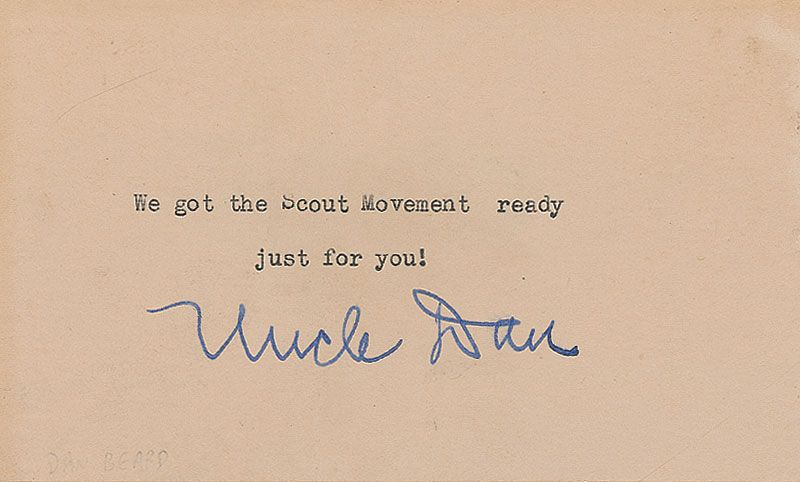 We got the Scout Movement ready
just for you!
Uncle Dan
DAN BEARD